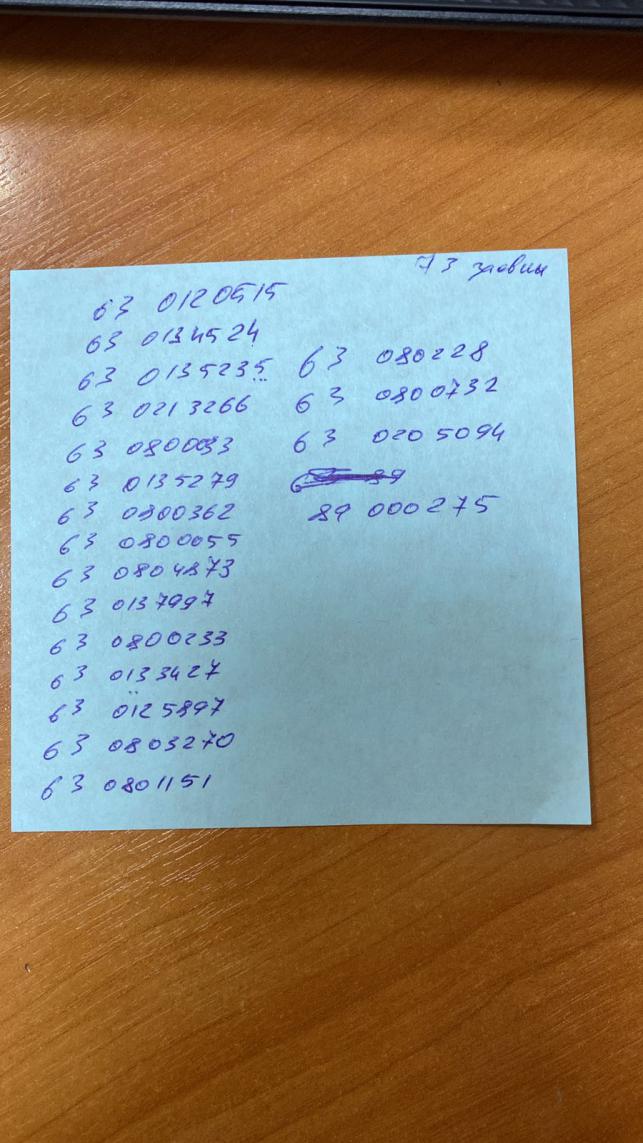 73 заявки
63 0120515
63 0134524
63 0135235
63 0213266
63 0800033
63 0135279
63 0800362
63 0800055
63 0804873
63 0137997
63 0800233
63 0133427
63 0125897
63 0803270
63 0801151
63 080228
63 0800732
63 0205094
89 000275